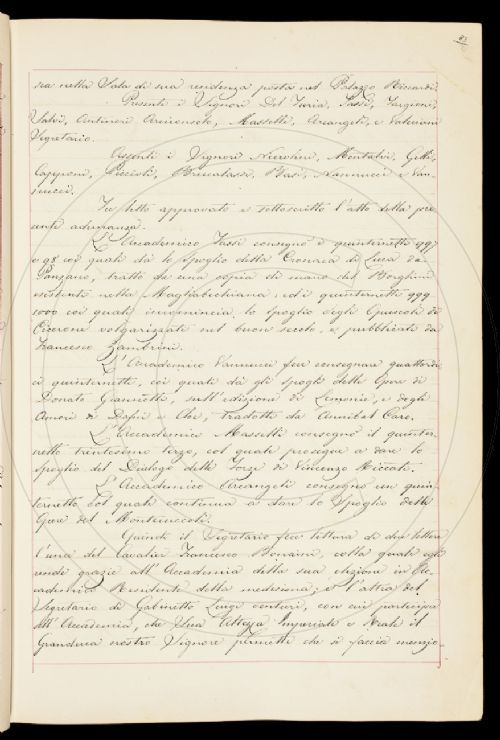 83
sia nella Sala di sua residenza posta nel Palazzo Riccardi.
Presenti i Signori Del Furia, Tassi, Targioni,
Salvi, Arcivescolo, Massetti, Arcangeli, e Valeriani
Segretario.
Assenti i Signori Niccolini, Montalvi, Gelli,
Capponi, Piccioli, Brucalassi, Basi, Nannucci e Van-
nucci.
Fu letto approvato e sottoscritto l'atto della prece
dente adunanza.
L'Accademico Tassi consegnò i quintinetti 997
e 98 coi quali dà lo spoglio della Cronaca di Luca da
Panzano, tratto da una copia di mano del Borghini
esistente nella Magliabechiana, ed i quintinetti 999
1000 coi quali incomincia lo spoglio degli Opuscoli di
Cicerone volgarizzati nel buon secolo, e pubblicati da
Francesco Zambrini.
L'Accademico Vannucci fece consegnare quattordi-
ci quinternetti, coi quali dà gli spogli delle Opere di
Donato Giannotti, sull'edizione di Lemonnier, e degli
Amori di Dafni e Cloe, tradotti da Annibal Caro.
L'Accademico Massetti consegnò il quinter-
netto trentesimo terzo, col quale prosegue a dare lo
Spoglio del Dialogo delle Forze di Vincenzo Riccati.
L'Accademico Arcangeli consegnò un quin-
ternetto col quale continua a dare lo Spoglio delle
Opere del Montecuccoli.
Quindi il Segretario fece lettura di due lettere
l'una del Cavalier Francesco Bonaini, colla quale egli
rende grazie all'Accademia della sua elezione in Ac-
cademico Residente della medesima; e l'altra del
Segretario di Gabinetto Luigi Venturi, con cui partecipa
all'Accademia, che Sua Altezza Imperiale e Reale il
Granduca nostro Signore permette che si faccia menzio-